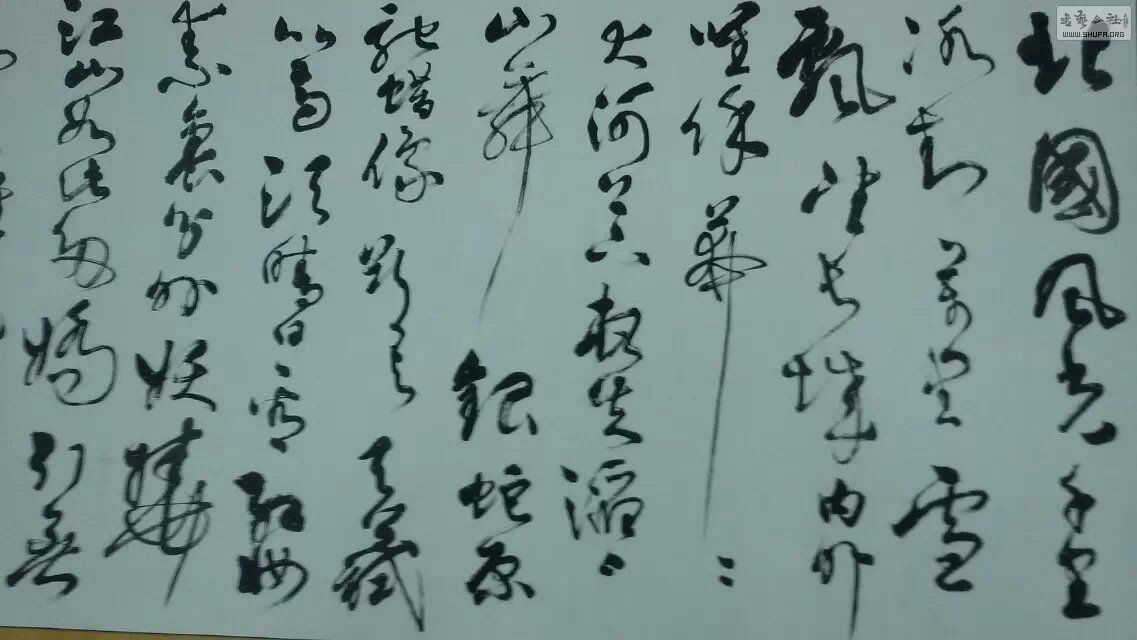 北國風光千里
冰封萬里雪
飄望長城内外
唯余莽々
大河上下頓失滔々
山舞銀蛇原
馳蜡像欲与天公試
比高須晴日看紅妝
素裹分外妖嬈
江山如此多嬌引無
書藝公社
WWW.SHUFA.ORG